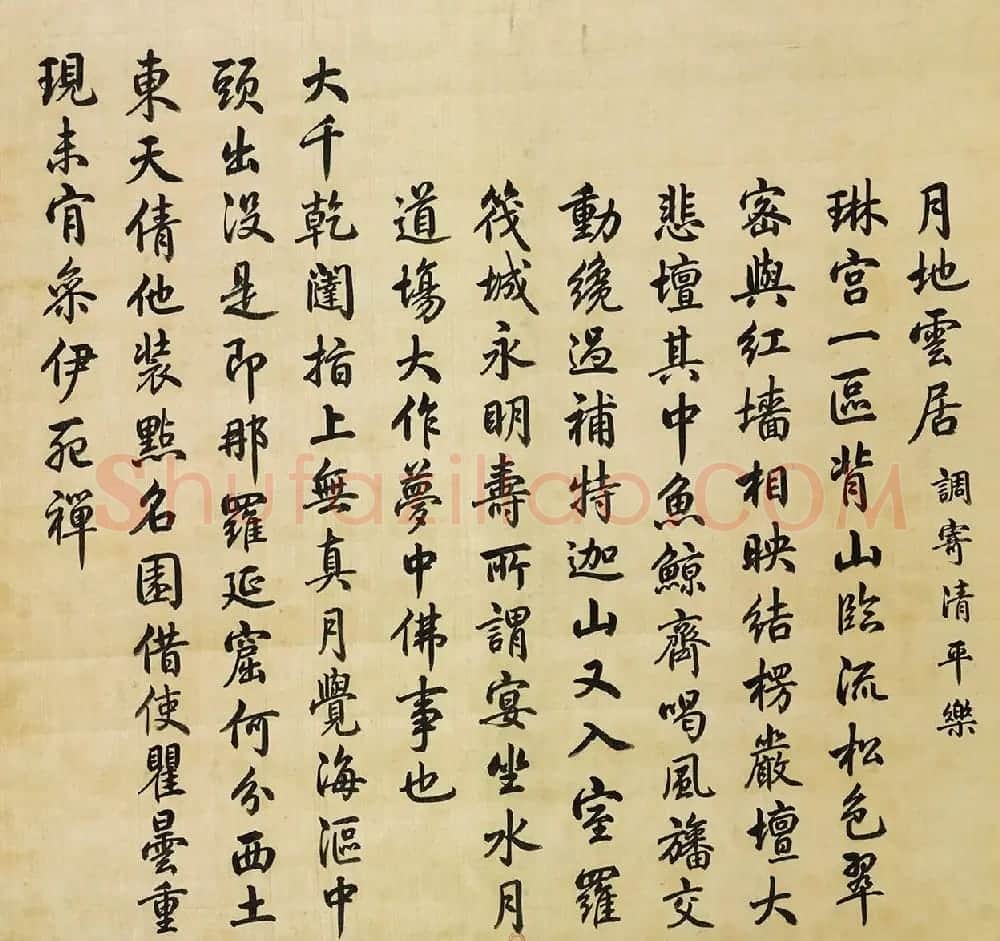 月地雲居 調寄清平樂
琳宮一區背山臨流松色翠
密與紅墻相映結楞嚴壇大
悲壇其中魚鯨齊喝風旛交
動纔過補特迦山又入室羅
筏城永明壽所謂宴坐水月
道場大作夢中佛事也
大千乾闥指上無真月覺海漚中
頭出没是即那羅延窟何分西土
東天倩他裝點名園借使瞿曇重
現未肎叅伊死禪
Shufaziliao.COM